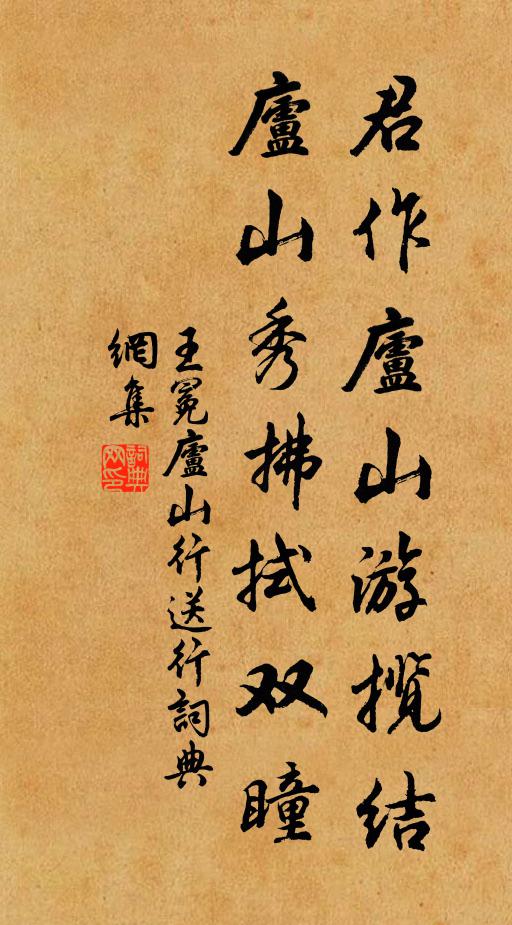 君作廬山游揽结
廬山秀拂拭双瞳
王冕廬山行送行詞典
網集
詞典
网印